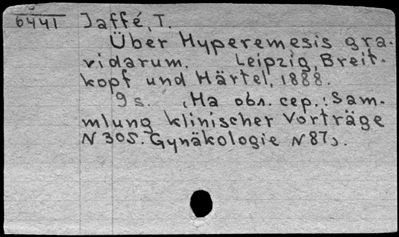 6441 Jaffé, T.
Über Hyperemesis gra-
vidarum. Leipzig, Breit-
kopf und Härtel, 1888.
9 s. (На обл. сер.: Sam-
mlung klinischer Vorträge
N 305. Gynäkologie N 87).